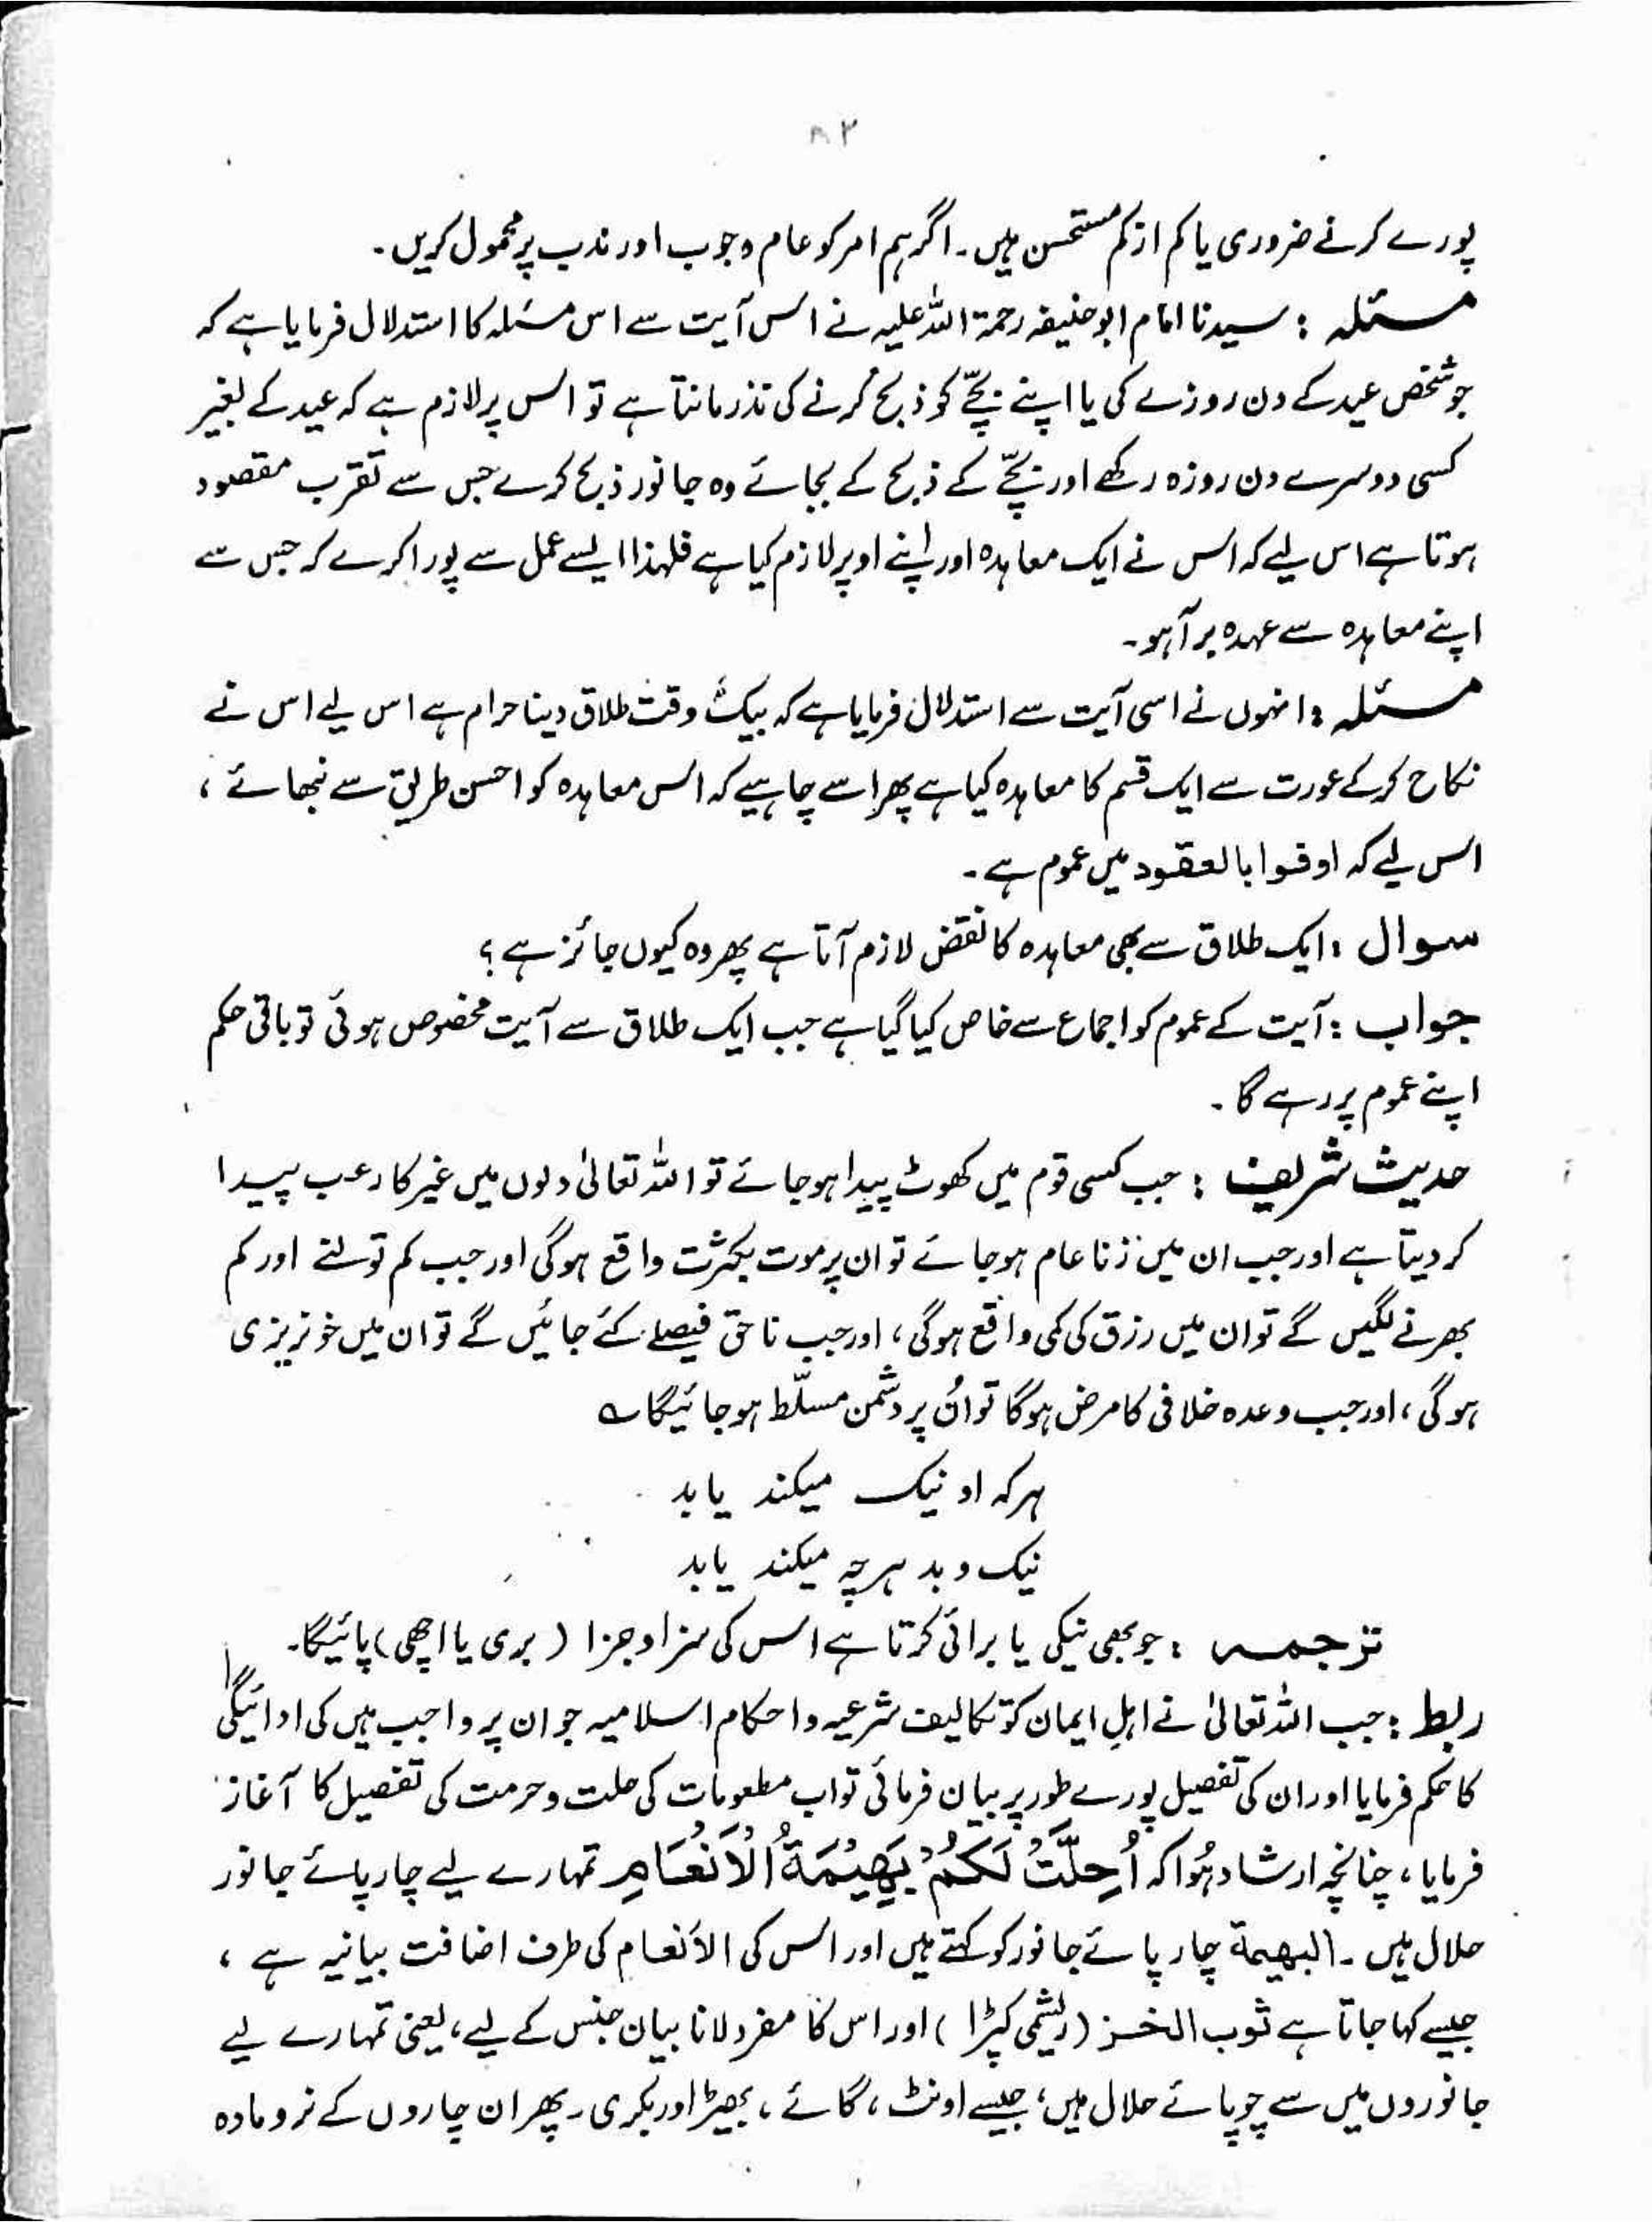 ۸۲
پورے کرنے ضروری یا کم از کم مستحسن ہیں۔ اگر ہم امر کو عام وجوب اور ندب پر محمول کریں۔
مسئلہ : سیدنا امام ابو حنیفہ رحمۃ اللہ علیہ نے اس آیت سے اس مسئلہ کا استدلال فرمایا ہے کہ
جو شخص عید کے دن روزے کی یا اپنے بچّے کو ذبح کرنے کی نذر مانتا ہے تو اس پر لازم ہے کہ عید کے بغیر
کسی دوسرے دن روزہ رکھے اور بچّے کے ذبح کے بجائے وہ جانور ذبح کرے جس سے تقرب مقصود
ہوتا ہے اس لیے کہ اس نے ایک معاہدہ اور اپنے اوپر لازم کیا ہے فلہذا ایسے عمل سے پورا کرے کہ جس سے
اپنے معاہدہ سے عہدہ برآ ہو۔
مسئلہ : انہوں نے اسی آیت سے استدلال فرمایا ہے کہ بیک وقت طلاق دینا حرام ہے اس لیے اس نے
نکاح کرکے عورت سے ایک قسم کا معاہدہ کیا ہے پھر اسے چاہیے کہ اس معاہدہ کو احسن طریق سے نبھائے ،
اس لیے کہ اوفوا بالعقود میں عموم ہے۔
سوال : ایک طلاق سے بھی معاہدہ کا نقض لازم آتا ہے پھر وہ کیوں جائز ہے ؟
جواب : آیت کے عموم کو اجماع سے خاص کیا گیا ہے جب ایک طلاق سے آیت مخصوص ہوئی تو باقی حکم
اپنے عموم پر رہے گا۔
حدیث شریف : جب کسی قوم میں کھوٹ پیدا ہوجائے تو اللہ تعالیٰ دلوں میں غیر کا رعب پیدا
کر دیتا ہے اور جب ان میں زنا عام ہوجائے تو ان پر موت بکثرت واقع ہوگی اور جب کم تولنے اور کم
بھرنے لگیں گے تو ان میں رزق کی کمی واقع ہوگی ، اور جب ناحق فیصلے کئے جائیں گے تو ان میں خونریزی
ہوگی ، اور جب وعدہ خلافی کا مرض ہوگا تو اُن پر دشمن مسلّط ہوجائیگا ؎
ہر کہ او نیک میکند یابد
نیک و بد ہرچہ میکند یابد
ترجمہ : جو بھی نیکی یا برائی کرتا ہے اس کی سزا و جزا ( بری یا اچھی ) پائیگا۔
ربط : جب اللہ تعالیٰ نے اہلِ ایمان کو تکالیف شرعیہ و احکام اسلامیہ جو ان پر واجب ہیں کی ادائیگی
کا حکم فرمایا اور ان کی تفصیل پورے طور پر بیان فرمائی تو اب مطعومات کی حلت و حرمت کی تفصیل کا آغاز
فرمایا ، چنانچہ ارشاد ہُوا کہ اُحِلَّتْ لَكُمْ بَهِيْمَةُ الْاَنْعَامِ تمہارے لیے چار پائے جانور
حلال ہیں ۔ البهيمة چار پائے جانور کو کہتے ہیں اور اس کی الانعام کی طرف اضافت بیانیہ ہے ،
جیسے کہا جاتا ہے ثوب الخز ( ریشمی کپڑا ) اور اس کا مفرد لانا بیان جنس کے لیے ، یعنی تمہارے لیے
جانوروں میں سے چوپائے حلال ہیں ، جیسے اونٹ ، گائے ، بھیڑ اور بکری ۔ پھر ان چاروں کے نر و مادہ